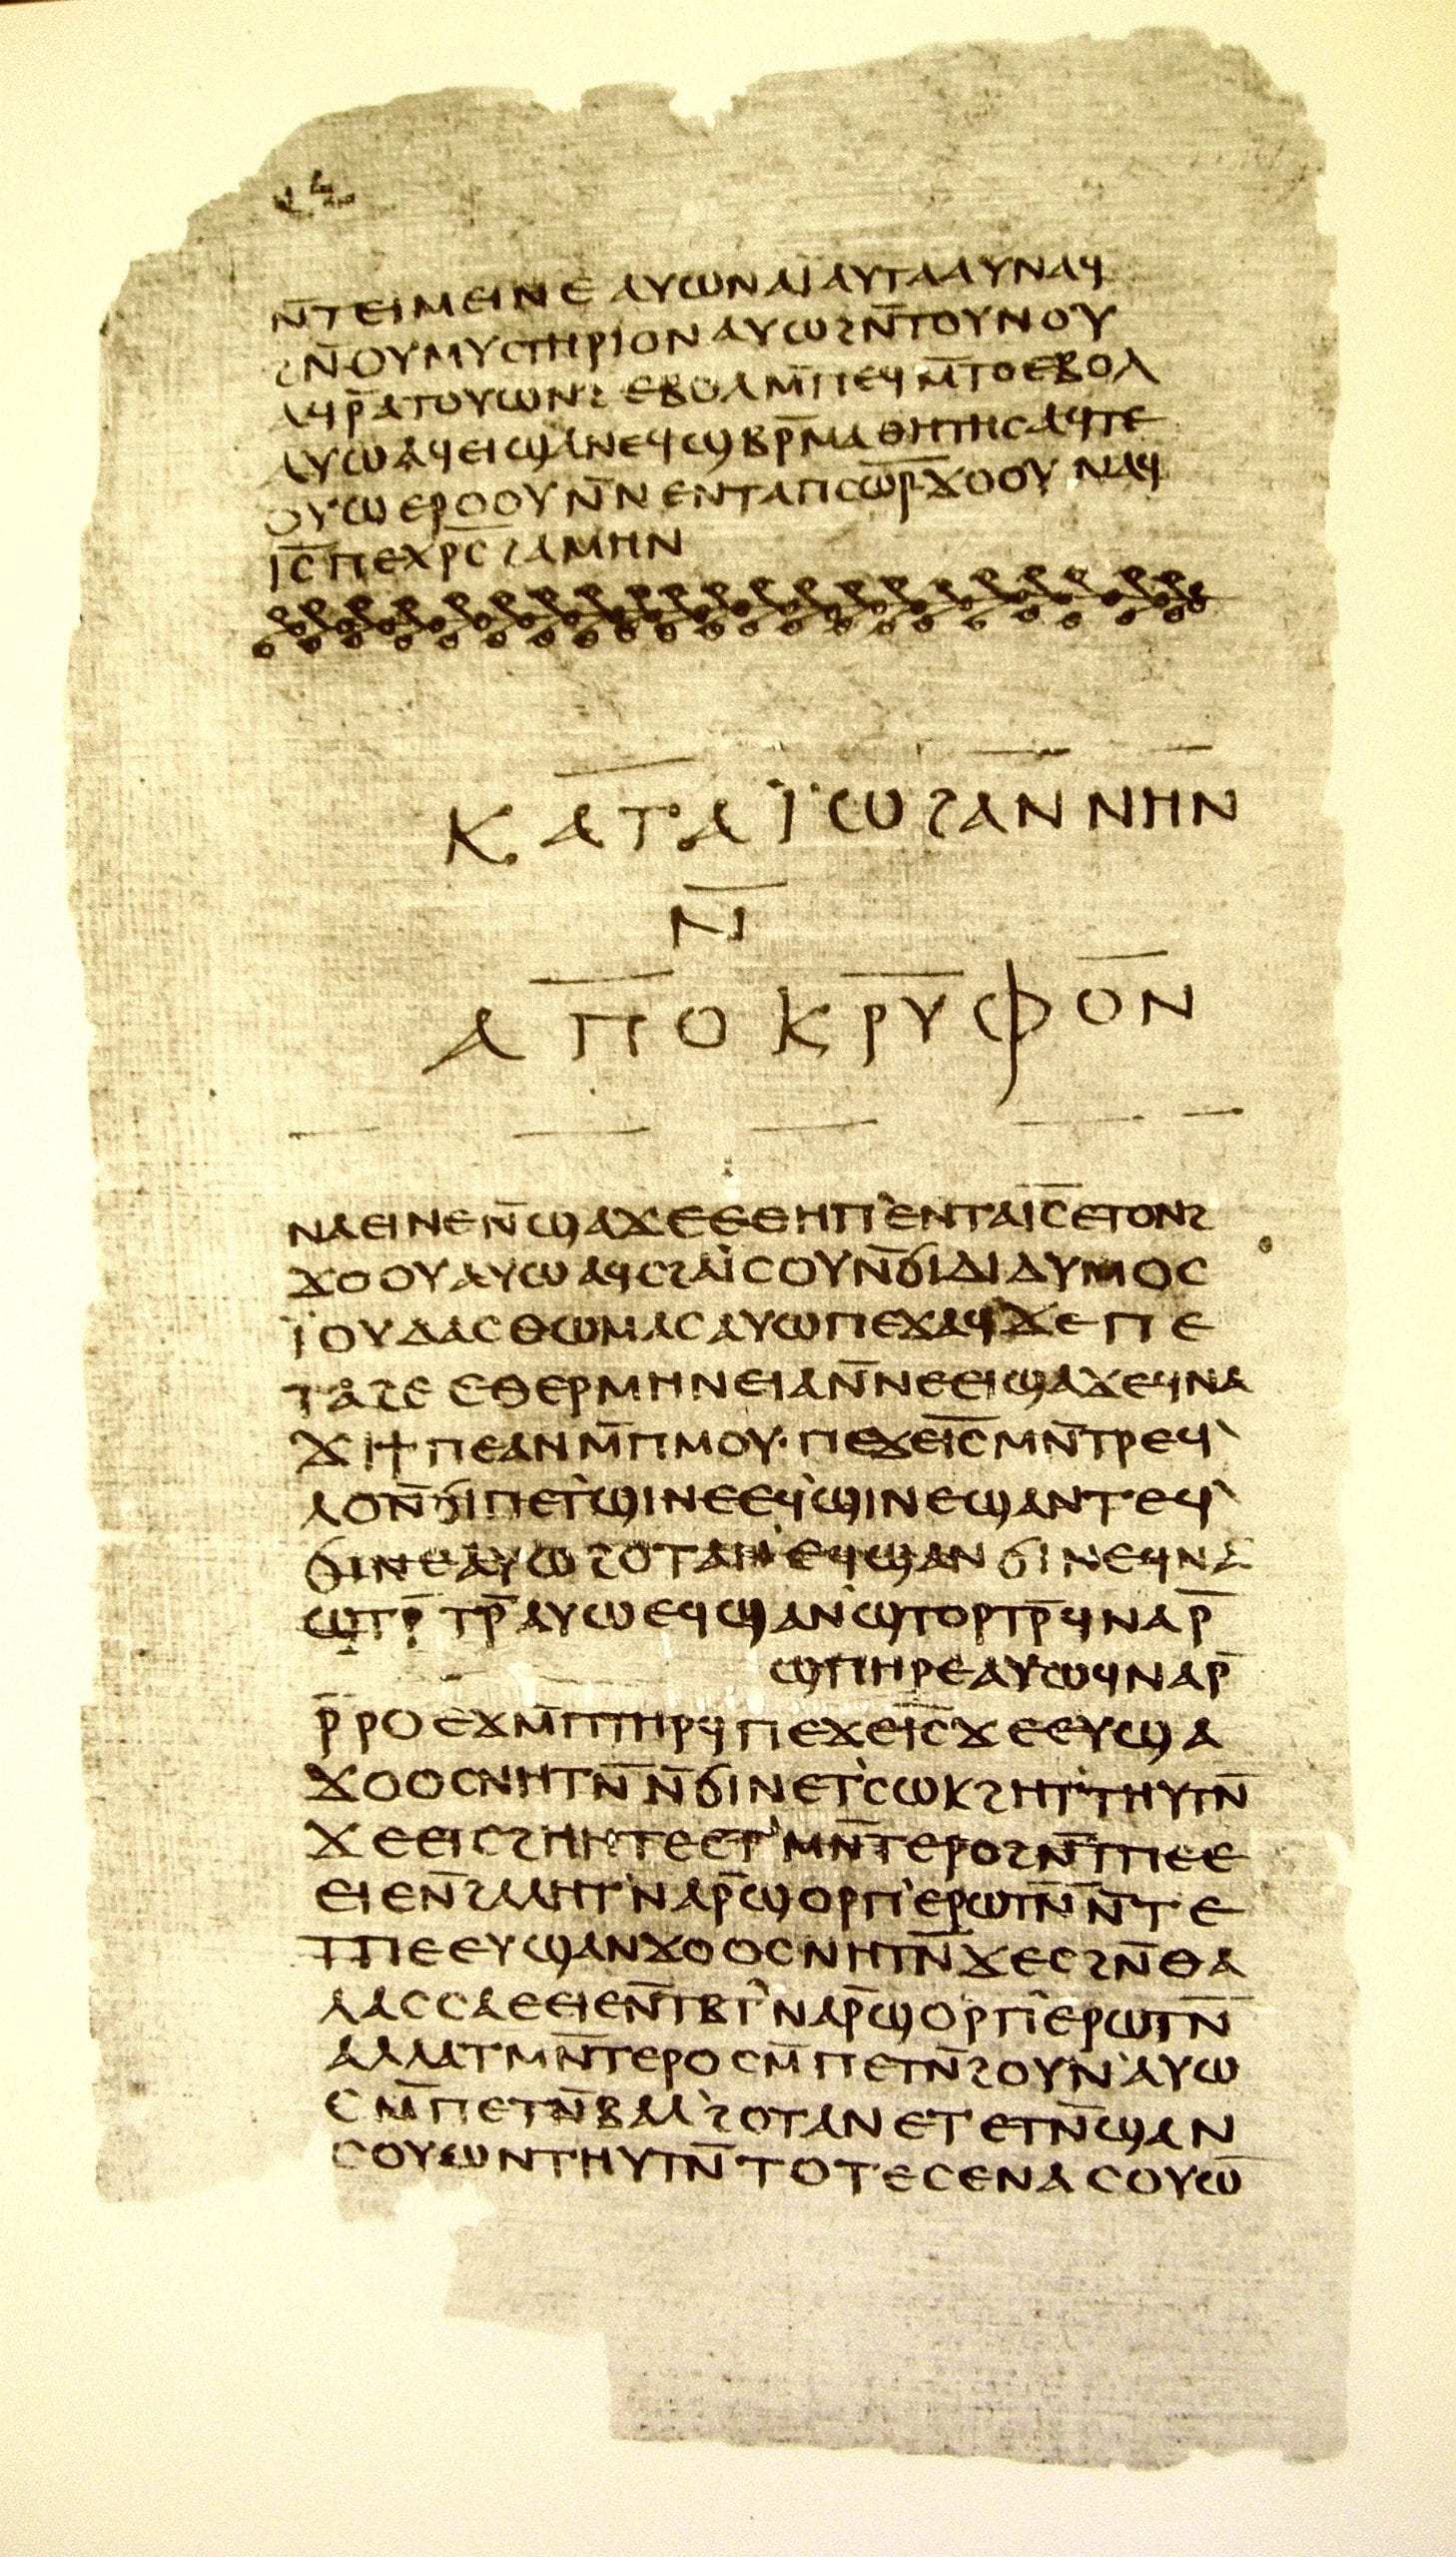 ⲛ̄ⲧⲉⲓⲙⲉⲓⲛⲉ ⲁⲩⲱⲛⲁⲓⲁⲩⲧⲁⲁⲩⲛⲁϥ
ϩⲛ̄ⲟⲩⲙⲩⲥⲧⲏⲣⲓⲟⲛⲁⲩⲱϩⲛ̄ⲧⲟⲩⲛⲟⲩ
ⲁϥⲣ̄ⲁⲧⲟⲩⲱⲛϩⲉⲃⲟⲗⲙ̄ⲡⲉϥⲙ̄ⲧⲟⲉⲃⲟⲗ
ⲁⲩⲱⲁϥⲉⲓϣⲁⲛⲉϥϣⲃⲣ̄ⲙⲁⲑⲏⲧⲏⲥⲁϥⲧⲉ
ⲟⲩⲱⲉⲣⲟⲟⲩⲛ̄ⲛⲉⲛⲧⲁⲡⲥⲱ̄ⲣ̄ϫⲟⲟⲩ ⲛⲁϥ
ⲓⲥ̄ⲡⲉⲭⲣⲥ̄ϩⲁⲙⲏⲛ
ⲕⲁⲧⲁ ⲓ̈ⲱϩⲁⲛⲛⲏⲛ
ⲛ̄
ⲁⲡⲟⲕⲣⲩⲫⲟⲛ
ⲛⲁⲉⲓⲛⲉⲛ̄ϣⲁϫⲉⲉⲑⲏⲡ'ⲉⲛⲧⲁⲓⲥ̄ⲉⲧⲟⲛϩ
ϫⲟⲟⲩⲁⲩⲱⲁϥⲥϩⲁⲓ̈ⲥⲟⲩⲛ̄ϭⲓⲇⲓⲇⲩⲙⲟⲥ
ⲓ̈ⲟⲩⲇⲁⲥⲑⲱⲙⲁⲥⲁⲩⲱⲡⲉϫⲁϥϫⲉⲡⲉ
ⲧⲁϩⲉ ⲉⲑⲉⲣⲙⲏⲛⲉⲓⲁⲛ̄ⲛⲉⲉⲓϣⲁϫⲉϥⲛⲁ
ϫⲓϯⲡⲉⲁⲛⲙ̄ⲡⲙⲟⲩ·ⲡⲉϫⲉⲓⲥ̄ⲙⲛ̄ⲧⲣⲉϥ'
ⲗⲟⲛ̄ϭⲓⲡⲉⲧ'ϣⲓⲛⲉⲉϥ'ϣⲓⲛⲉϣⲁⲛⲧⲉϥ'
ϭⲓⲛⲉⲁⲩⲱϩⲟⲧⲁⲛ'ⲉϥϣⲁⲛϭⲓⲛⲉϥⲛⲁ
ϣⲧⲣ̄ⲧⲣ̄ⲁⲩⲱⲉϥϣⲁⲛ'ϣⲧⲟⲣⲧⲣ̄ϥⲛⲁⲣ̄
ϣⲡⲏⲣⲉⲁⲩⲱϥⲛⲁⲣ̄
ⲣ̄ⲣⲟⲉϫⲙ̄ⲡⲧⲏⲣϥⲡⲉϫⲉⲓⲥ̄ϫⲉⲉⲩϣⲁ
ϫⲟⲟⲥⲛⲏⲧⲛ̄ⲛ̄ϭⲓⲛⲉⲧ'ⲥⲱⲕϩⲏⲧ'ⲧⲏⲩⲧⲛ̄
ϫⲉⲉⲓⲥϩⲏⲏⲧⲉⲉⲧ'ⲙⲛ̄ⲧⲉⲣⲟϩⲛ̄ⲧⲡⲉⲉ
ⲉⲓⲉⲛ̄ϩⲁⲗⲏⲧ'ⲛⲁⲣ̄ϣⲟⲣⲡ'ⲉⲣⲱⲧⲛ̄ⲛ̄ⲧⲉ
ⲧⲡⲉⲉⲩϣⲁⲛϫⲟⲟⲥⲛⲏⲧⲛ̄ϫⲉⲥϩⲛ̄ⲑⲁ
ⲗⲁⲥⲥⲁⲉⲉⲓⲉⲛ̄ⲧⲃⲧ'ⲛⲁⲣ̄ϣⲟⲣⲡ'ⲉⲣⲱⲧⲛ̄
ⲁⲗⲗⲁⲧⲙⲛ̄ⲧⲉⲣⲟⲥⲙ̄ⲡⲉⲧⲛ̄ϩⲟⲩⲛ'ⲁⲩⲱ
ⲥⲙ̄ⲡⲉⲧⲛ̄ⲃⲁⲗ'ϩⲟⲧⲁⲛⲉⲧⲉⲧⲛ̄ϣⲁⲛ
ⲥⲟⲩⲱⲛⲧⲏⲩⲧⲛ̄ⲧⲟⲧⲉⲥⲉⲛⲁⲥⲟⲩⲱ̄